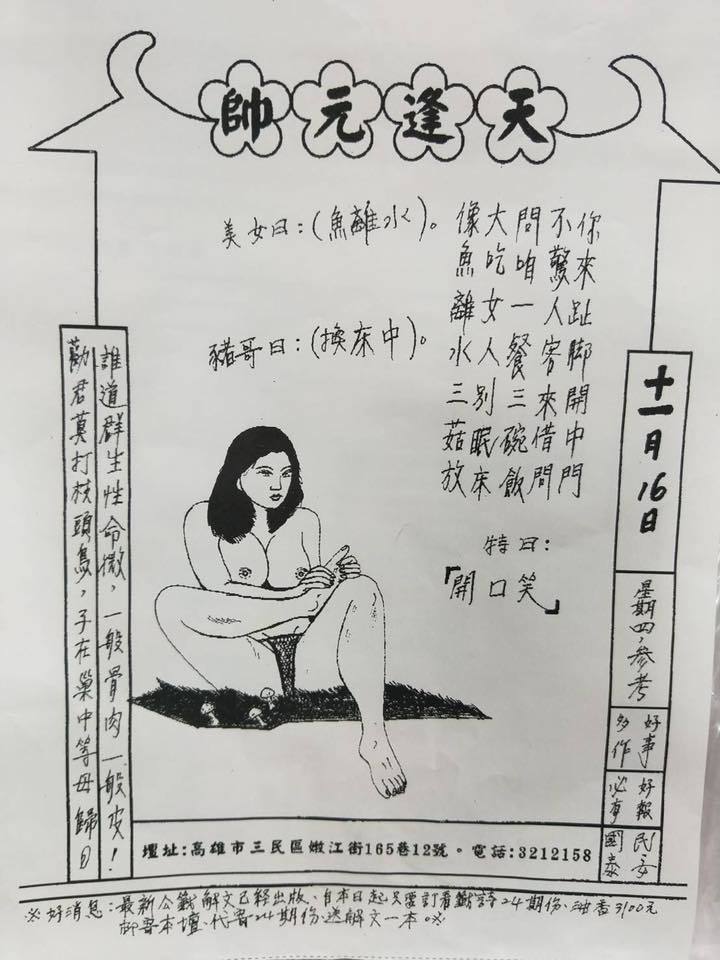 天逢元帥
你來趾脚開中門
不驚人客來借問
問咱一餐三碗飯
大吃女人別眠床
像魚離水三菇放
美女曰：(魚離水)。
豬哥曰：(換床中)。
特曰：
「開口笑」
十一月16日
星期四，參考
好事
多作
好報
必有
民安
國泰
誰道群生性命微，一般骨肉一般皮！
勸君莫打枝頭鳥，子在巢中等母歸曰
壇址:高雄市三民區嫩江街165巷12號。電話:3212158
※好消息：最新公籤解文已经出版、自本日起只要訂看籤詩24期份、油香3100元
寄本壇、代寄24期份、送解文一本。※